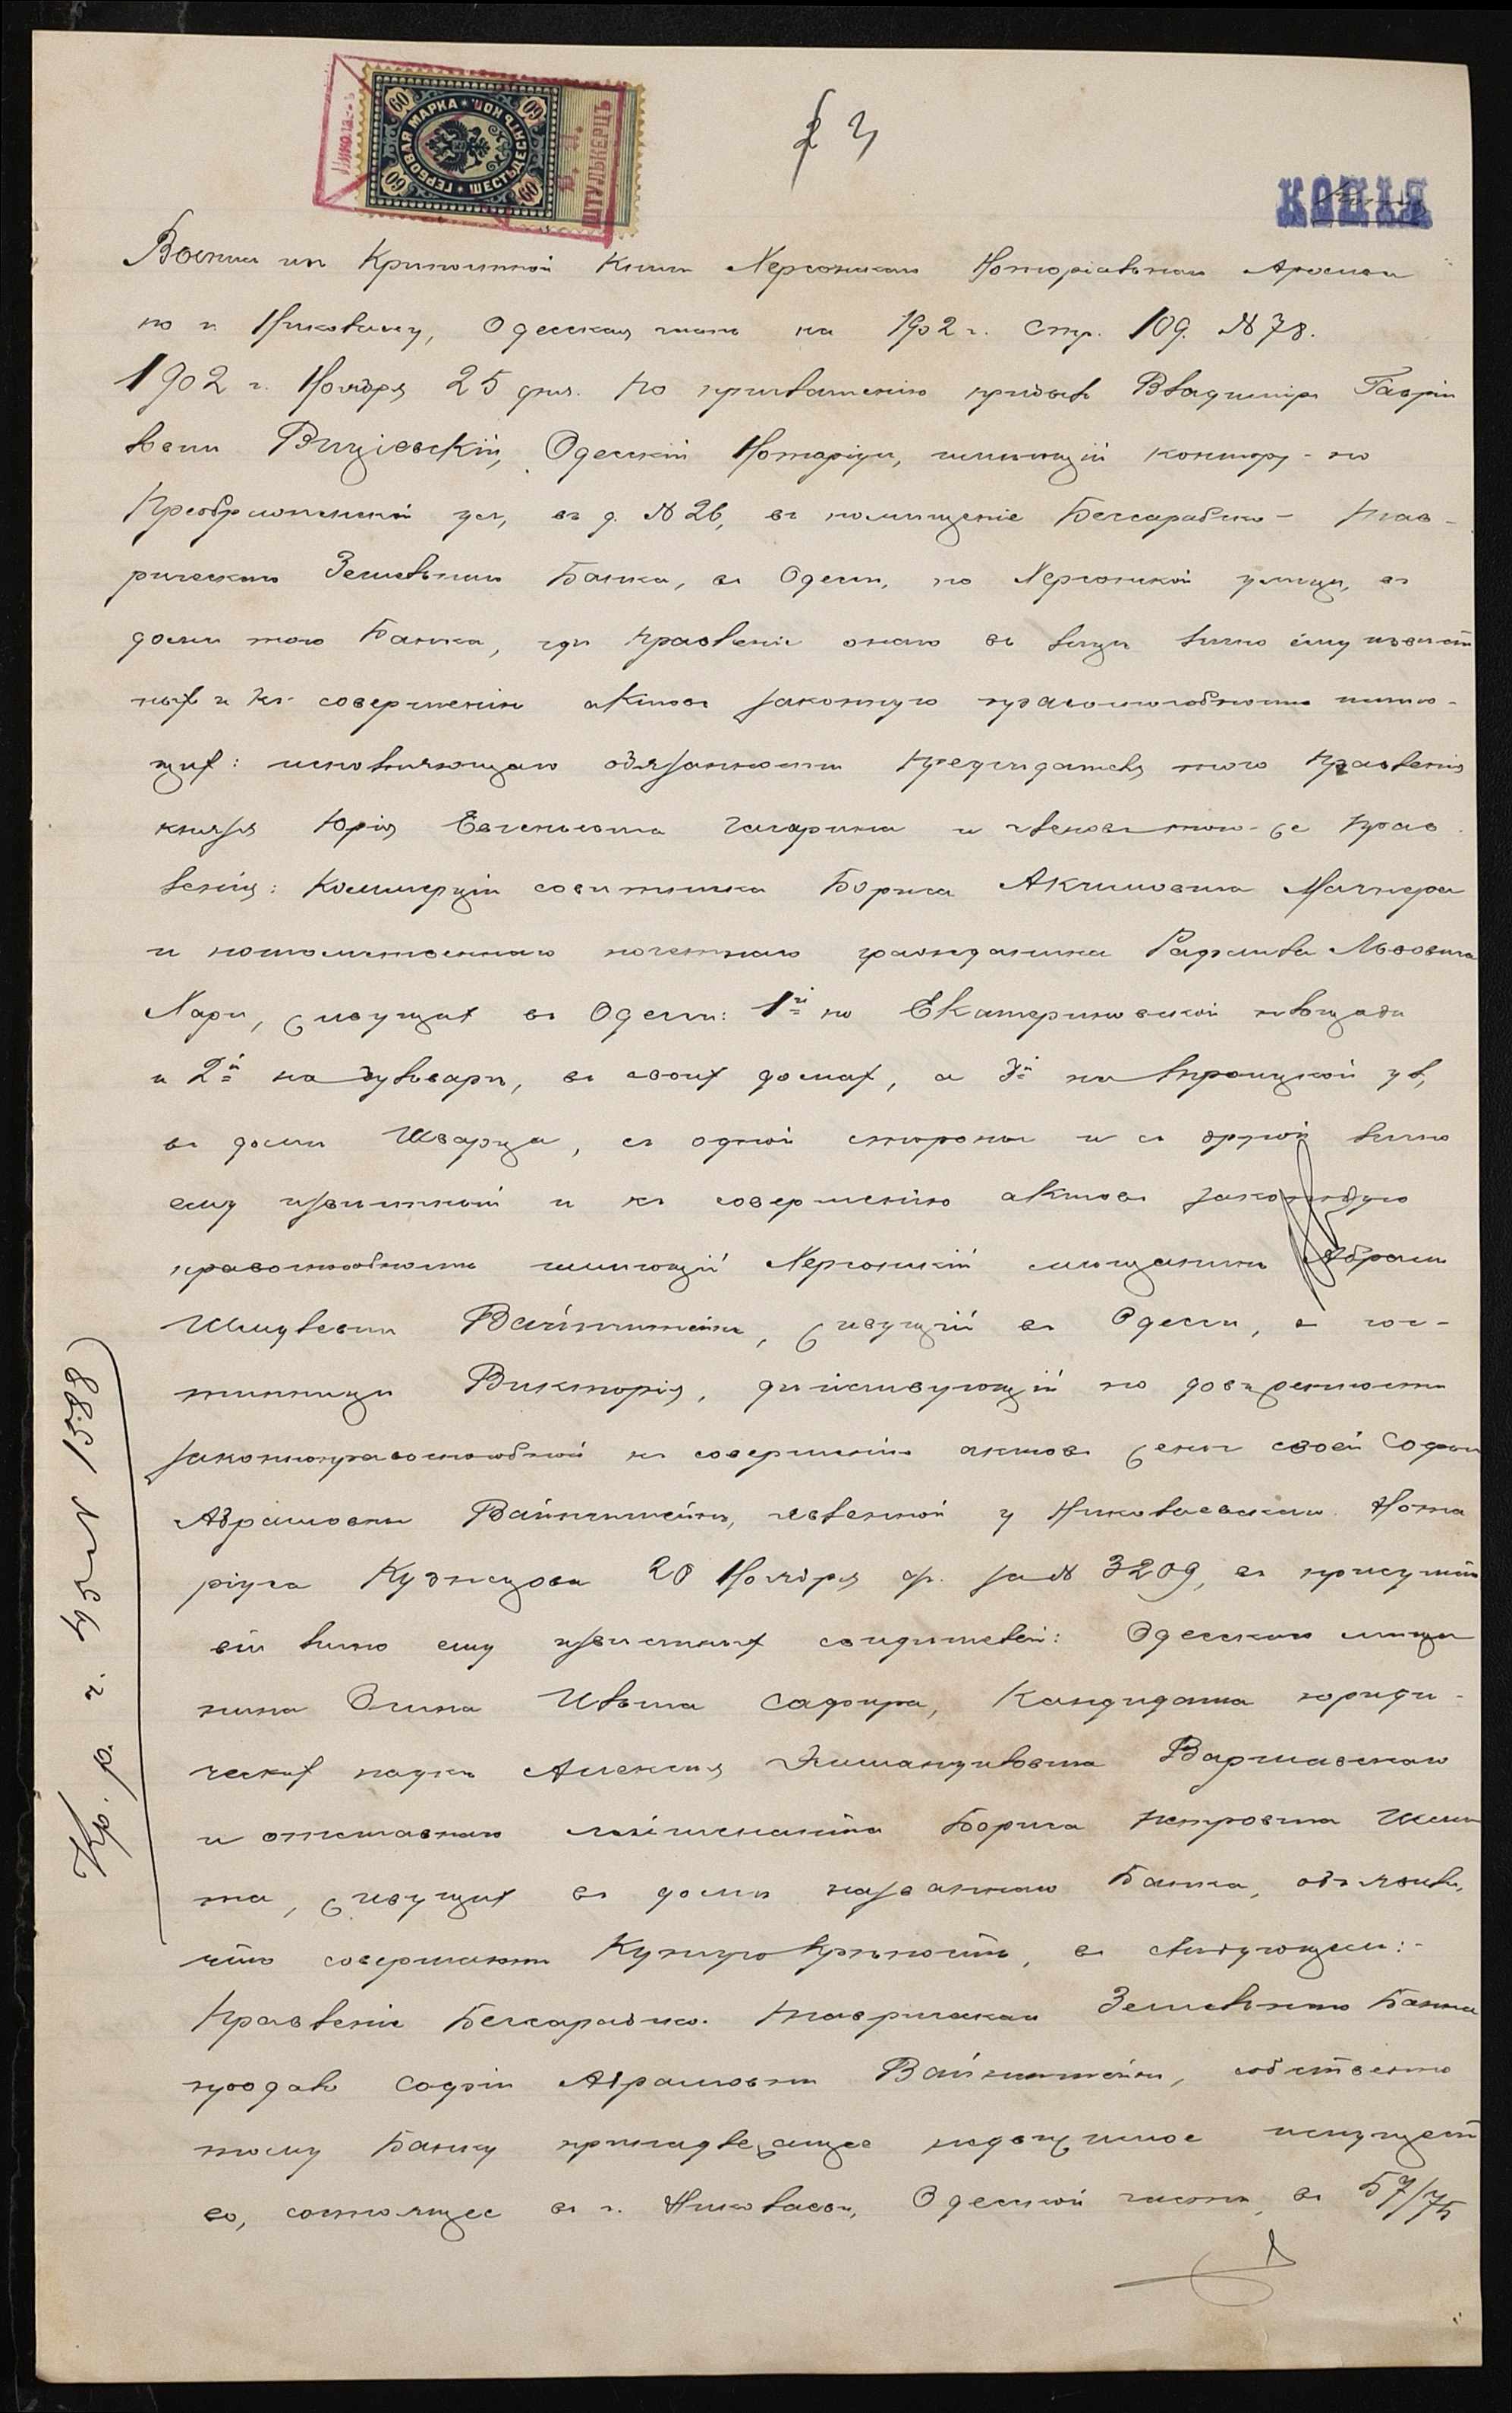 ГЕРБОВАЯ МАРКА
ШЕСТЬДЕСЯТЪ КОП.
60 60
60 60
ШТУЛЬКЕРЦЪ
2 3
КОПІЯ
Выпись изъ Крѣпостной Книги Херсонскаго Нотаріальнаго Архива
по г. Николаеву, Одесская часть на 1902 г. стр. 109. № 78.
1902 г. Ноября 25 дня. По приглашенію прибылъ Владиміръ Гаврі
ловичъ Одесскій Нотаріусъ, имѣющій контору по
Преображенской ул., въ д. № 26, въ помѣщеніе Бессарабско- Тав-
рическаго Земельнаго Банка, въ Одессѣ, по Херсонской улицѣ, въ
домѣ того Банка, гдѣ Правленіе онаго въ лицѣ лично ему извѣст
ныхъ и къ совершенію актовъ законную правоспособность имѣю-
щихъ: исполняющаго обязанности Предсѣдателя того Правленія
князя Юрія Евгеньевича Гагарина и членовъ того-же Прав
ленія: Коммерціи совѣтника Бориса Акимовича
и потомственнаго почетнаго гражданина Рафаила Львовича
Хари, живущихъ въ Одессѣ: 1й по Екатерининской площади
и 2й на бульварѣ, въ своихъ домахъ, а 3й на Троицкой ул,
въ домѣ Шварца, съ одной стороны и съ другой лично
ему извѣстный и къ совершенію актовъ законную
правоспособность имѣющій Херсонскій мѣщанинъ Абрамъ
Шмулевичъ Вайнштейнъ, живущій въ Одессѣ, въ гос-
тинницѣ Викторія, дѣйствующій по довѣренности
законноправоспособной къ совершенію актовъ жены своей Софіи
Абрамовны Вайнштейнъ, явленной у Николаевскаго Нота
ріуса Кузнецова 20 Ноября с/г. за № 3209, въ присутст
віи лично ему извѣстныхъ свидѣтелей: Одесскаго мѣща
нина Сафира, Кандидата юриди-
ческихъ наукъ Алексѣя Эммануиловича Варшавскаго
и отставного лейтенанта Бориса Петровича
та, живущихъ въ домѣ названнаго Банка, объявилъ,
что совершаютъ Купчую крѣпость, въ слѣдующемъ:-
Правленіе Бессарабско- Таврическаго Земельнаго Банка
продало Софіи Абрамовнѣ Вайнштейнъ, собственно
тому Банку принадлежащее недвижимое имущест
во, состоящее въ г. Николаевѣ, Одесской части, въ 57/75
Кр. р. г. 95 № 1588